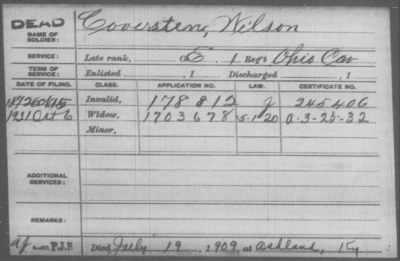 DEAD
NAME OF SOLDIER:
Coversten, Wilson
SERVICE:
Late rank, E, 1 Reg't Ohio Cav
TERM OF SERVICE:
Enlisted , 1 Discharged , 1
DATE OF FILING. CLASS. APPLICATION NO. LAW. CERTIFICATE NO.
Invalid, 178 812 J 245 406
1931 Oct 6 Widow, 1703678 5-1-20 a-3-25-32
Minor,
ADDITIONAL SERVICES:
REMARKS:
P.I.B Died July 19, 1909, at Ashland, Ky